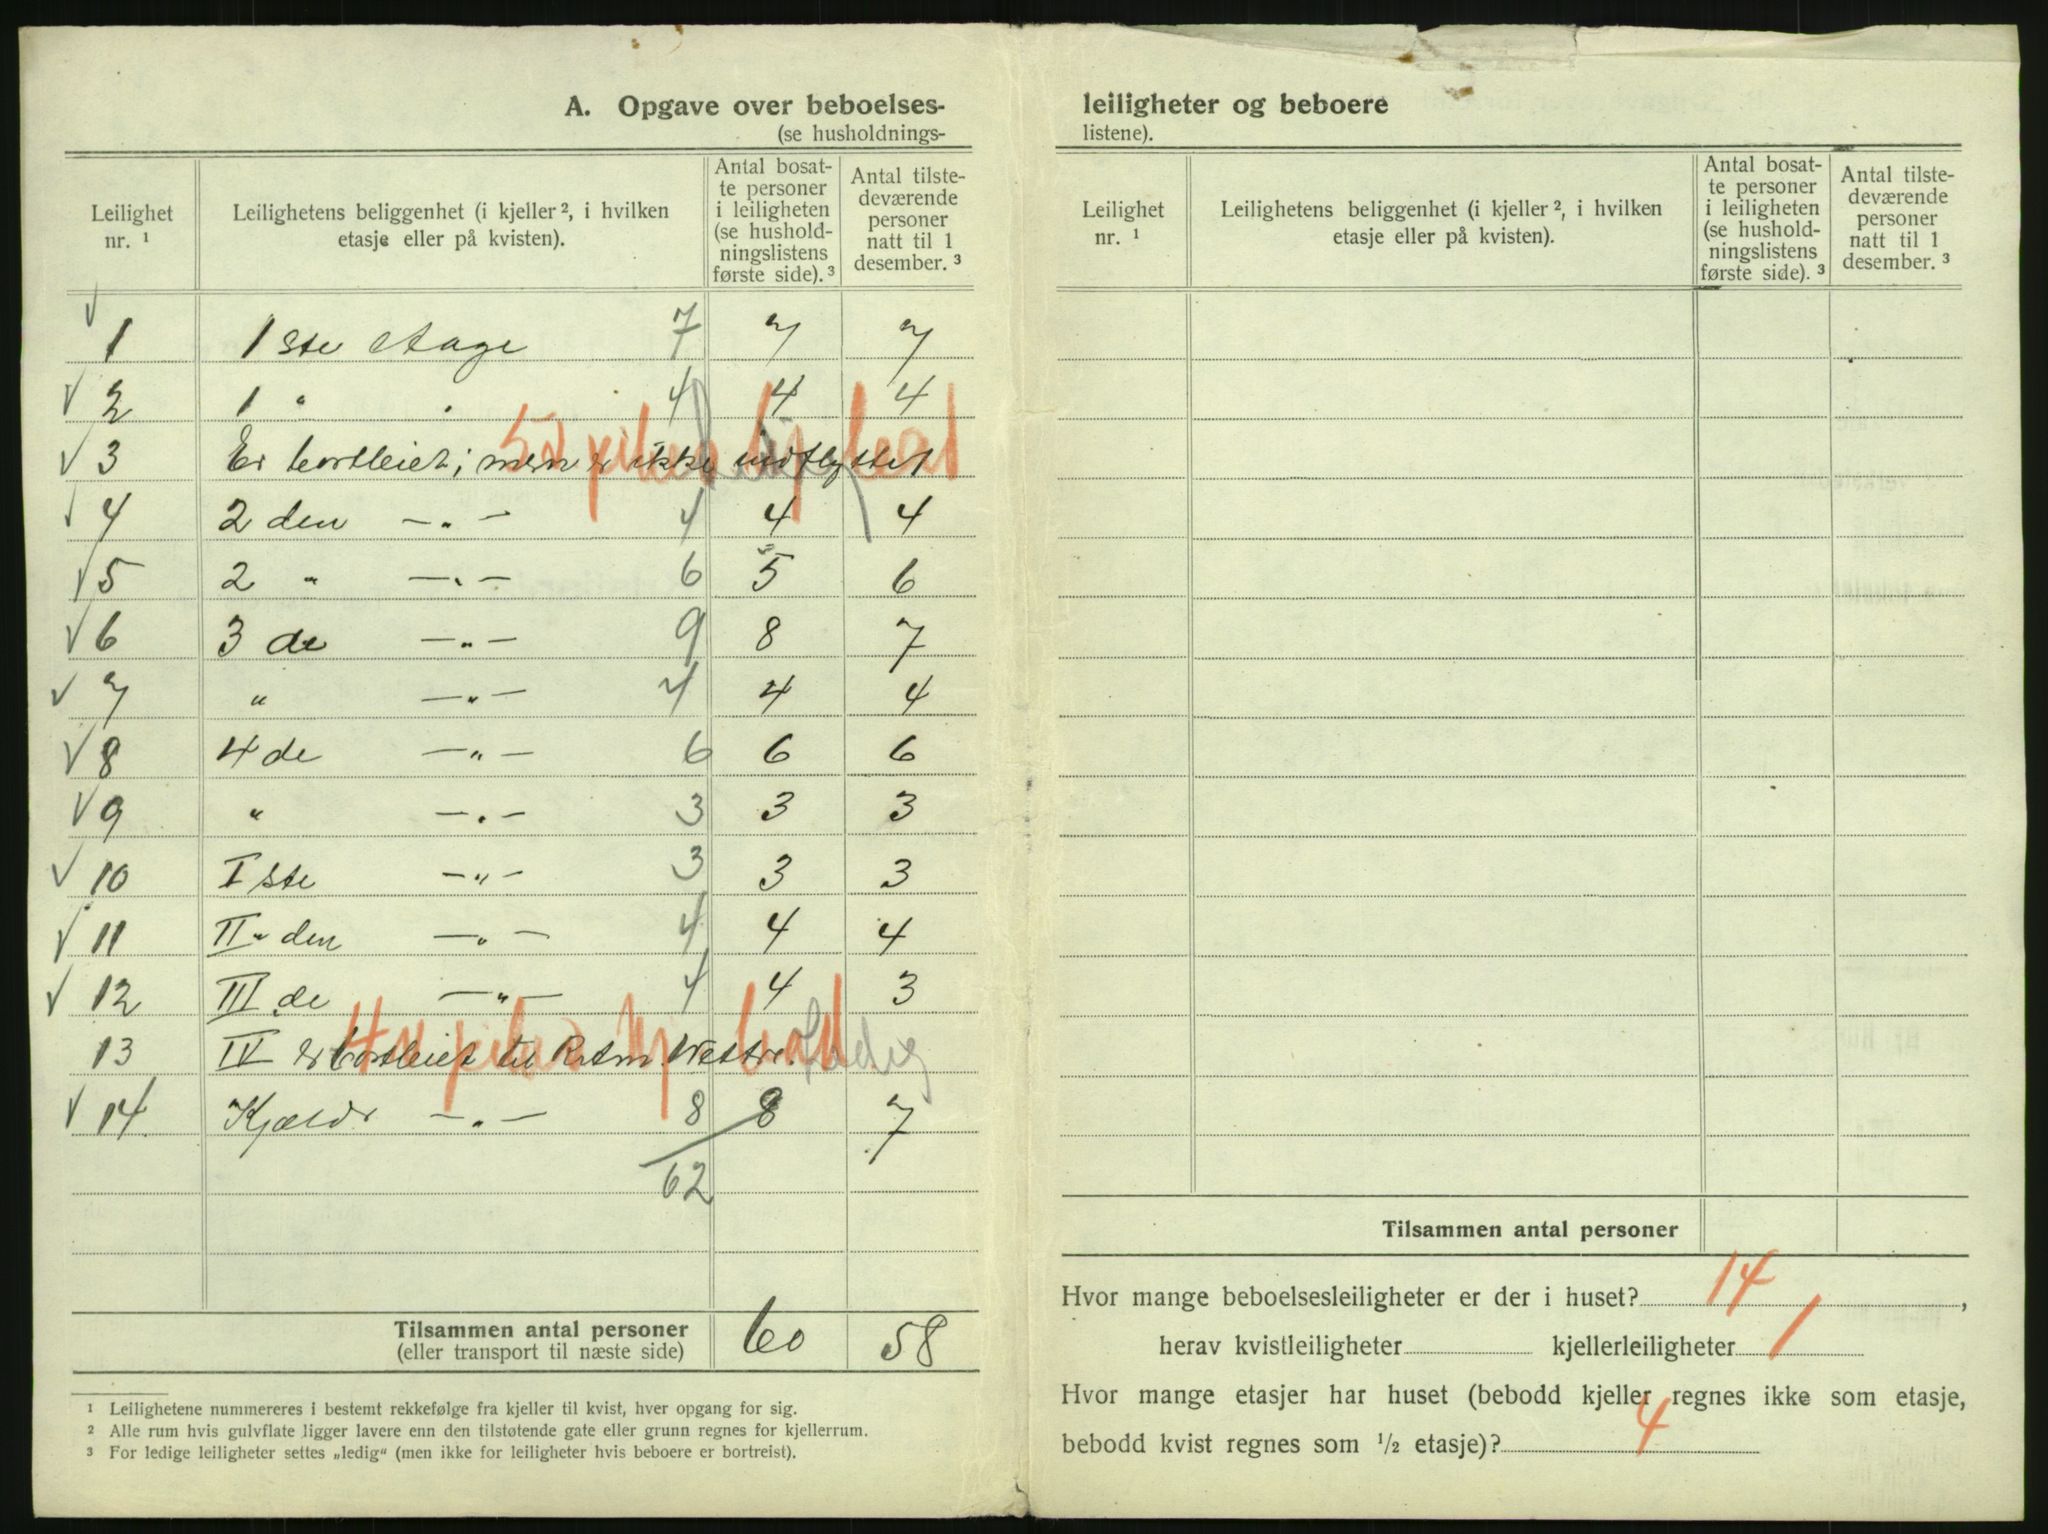 A. Opgave over beboelses-
(se husholdnings-
Leilighet nr. ¹ | Leilighetens beliggenhet (i kjeller ², i hvilken etasje eller på kvisten). | Antal bosatte personer i leiligheten (se husholdningslistens første side). ³ | Antal tilstedeværende personer natt til 1 desember. ³
√ 1 1 ste etage 7 7 7
√ 2 1 " " 4 4 4
√ 3 Er bortleiet; men er ikke indflyttet
√ 4 2 den —„— 4 4 4
√ 5 2 " —„— 6 5 6
√ 6 3 de —„— 9 8 7
√ 7 " —„— 4 4 4
√ 8 4 de —„— 6 6 6
√ 9 " —„— 3 3 3
√ 10 I ste —„— 3 3 3
√ 11 II den —„— 4 4 4
√ 12 III de —„— 4 4 3
13 IV er bortleiet til Ledig
√ 14 Kjælder —„— 8 8 7
62
Tilsammen antal personer 60 58
(eller transport til næste side)
¹ Leilighetene nummereres i bestemt rekkefølge fra kjeller til kvist, hver opgang for sig.
² Alle rum hvis gulvflate ligger lavere enn den tilstøtende gate eller grunn regnes for kjellerrum.
³ For ledige leiligheter settes „ledig“ (men ikke for leiligheter hvis beboere er bortreist).
leiligheter og beboere
listene).
Leilighet nr. ¹ | Leilighetens beliggenhet (i kjeller ², i hvilken etasje eller på kvisten). | Antal bosatte personer i leiligheten (se husholdningslistens første side). ³ | Antal tilstedeværende personer natt til 1 desember. ³
Tilsammen antal personer
Hvor mange beboelsesleiligheter er der i huset? 14,
herav kvistleiligheter kjellerleiligheter 1
Hvor mange etasjer har huset (bebodd kjeller regnes ikke som etasje,
bebodd kvist regnes som ½ etasje)? 4